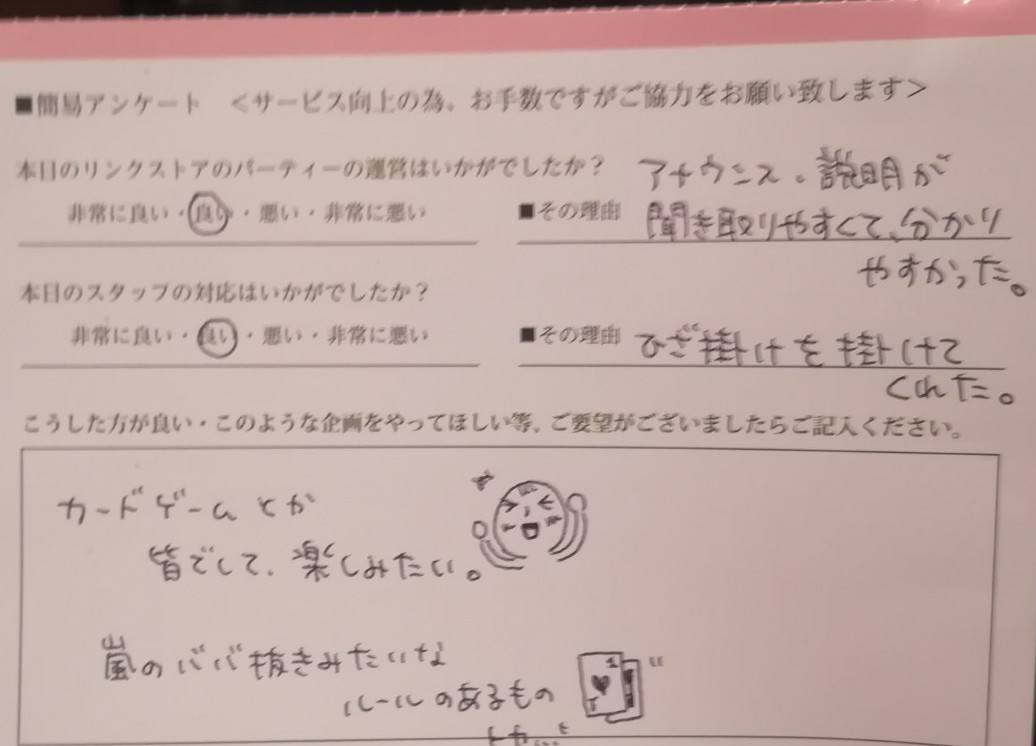 ■簡易アンケート ＜サービス向上の為、お手数ですがご協力をお願い致します＞
本日のリンクストアのパーティーの運営はいかがでしたか？
非常に良い・良い・悪い・非常に悪い
■その理由
アナウンス、説明が
聞き取りやすくて、分かり
やすかった。
本日のスタッフの対応はいかがでしたか？
非常に良い・良い・悪い・非常に悪い
■その理由
ひざ掛けを掛けて
くれた。
こうした方が良い・このような企画をやってほしい等、ご要望がございましたらご記入ください。
カードゲームとか
皆でして、楽しみたい。
嵐のババ抜きみたいな
ルールのあるもの